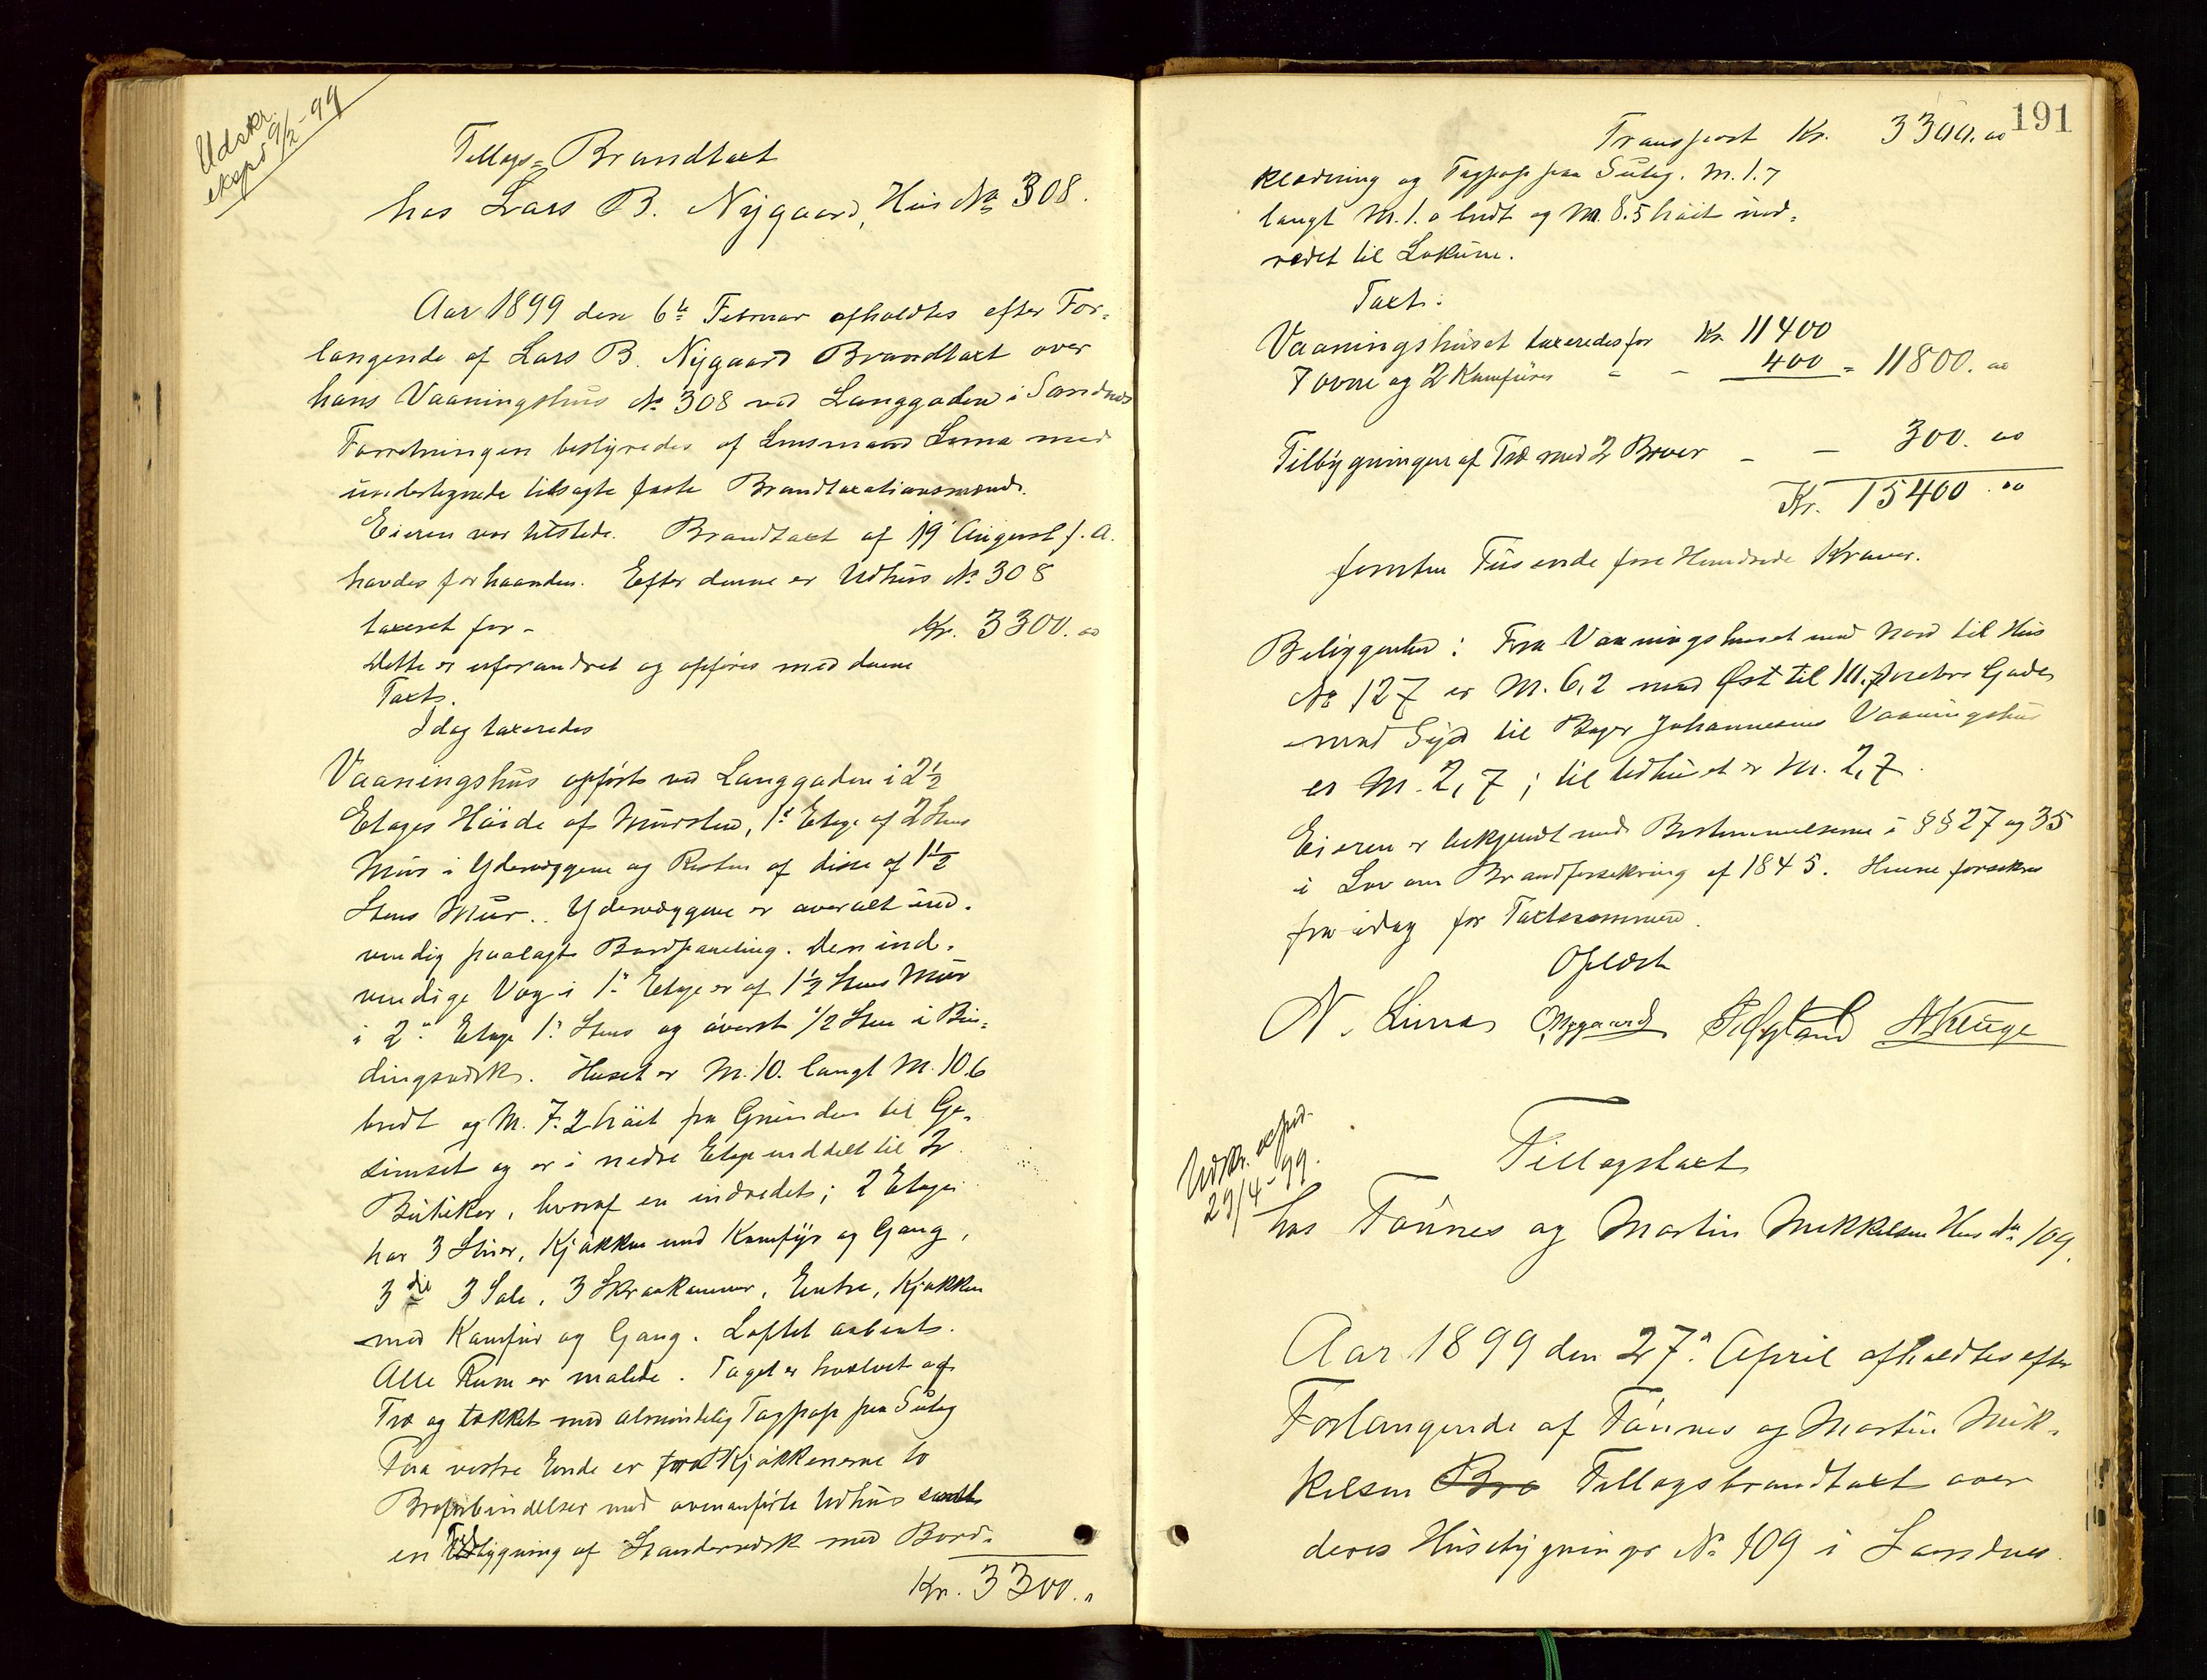 Udskr.
exspd 9/2-99
Tillægs=Brandtaxt
hos Lars B. Nygaard, Hus No 308.
Aar 1899 den 6te Februar afholdtes efter For-
langende af Lars B. Nygaard Brandtaxt over
hans Vaaningshus No 308 ved Langgaden i Sandnes
Forretningen bestyredes af Lensmand Lima med
undertegnede tilsagte faste Brandtaxationsmænd.
Eieren var tilstede. Brandtaxt af 19 August f. A.
havdes forhaanden. Efter denne er Udhus No 308
taxeret for - Kr. 3300.00
Dette er uforandret og opføres med denne
Taxt.
Idag taxeredes
Vaaningshus opført ved Langgaden i 2½
Etages Høide af Mursten, 1ste Etage af 2 Stens
Mur i Ydervæggene og Resten af disse af 1½
Stens Mur. Ydervæggene er overalt ind-
vendig paalagt Bordpaneling. Den ind-
vendige Væg i 1ste Etage er af 1½ Stens Mur
i 2den Etage 1 Stens og øverst 1/2 Sten i Bin-
dingsverk. Huset er M. 10. langt M. 10.6
bredt og M. 7.2 høit fra Grunden til Ge-
simset og er i nedre Etage inddelt til 2
Butiker, hvoraf en indredet; 2 Etage
har 3 Stuer, Kjøkken med Komfyr og Gang,
3die 3 Sale, 3 Skraakammer, Entre, Kjøkken
med Komfur og Gang. Loftet aabent.
Alle Rum er malede. Taget er hvælvet af
Træ og tækket med almindelig Tagpap paa Sutag
Paa vestre Ende er fra Kjøkkenerne to
Broforbindelser med ovenanførte Udhus samt
en Tilbygning af Standerverk med Bord-
Kr. 3300.00
191
Transport Kr. 3300.00
klædning og Tagpap paa Sutag. M. 1.7
langt M. 1.0 bredt og M. 8.5 høit ind-
redet til Lokum.
Taxt:
Vaaningshuset taxeredes for Kr 11400
7 ovne og 2 Komfurer - - 400 = 11800.00
Tilbygningen af Træ med 2 Broer - - 300.00
Kr. 15400.00
femten Tusende fire Hundrede Kroner.
Beliggenhed: Fra Vaaningshuset mod Nord til Hus
No 127 er M. 6,2 mod Øst til M. Gade,
mod Syd til Bager Johannesens Vaaningshus
er M. 2,7; til Udhuset er M. 2,7.
Eieren er bekjendt med Bestemmelserne i §§ 27 og 35
i Lov om Brandforsikring af 1845. Huset forsikres
fra idag for Taxtsummen.
Oplæst
N. Lima O Nygaard
Udskr. exped.
29/4-99.
Tillægstaxt
hos Tønnes og Martin Mikkelsen Hus No 109.
Aar 1899 den 27de April afholdtes efter
Forlangende af Tønnes og Martin Mik-
kelsen Bra Tillægsbrandtaxt over
deres Husebygninger No 109 i Sandnes.